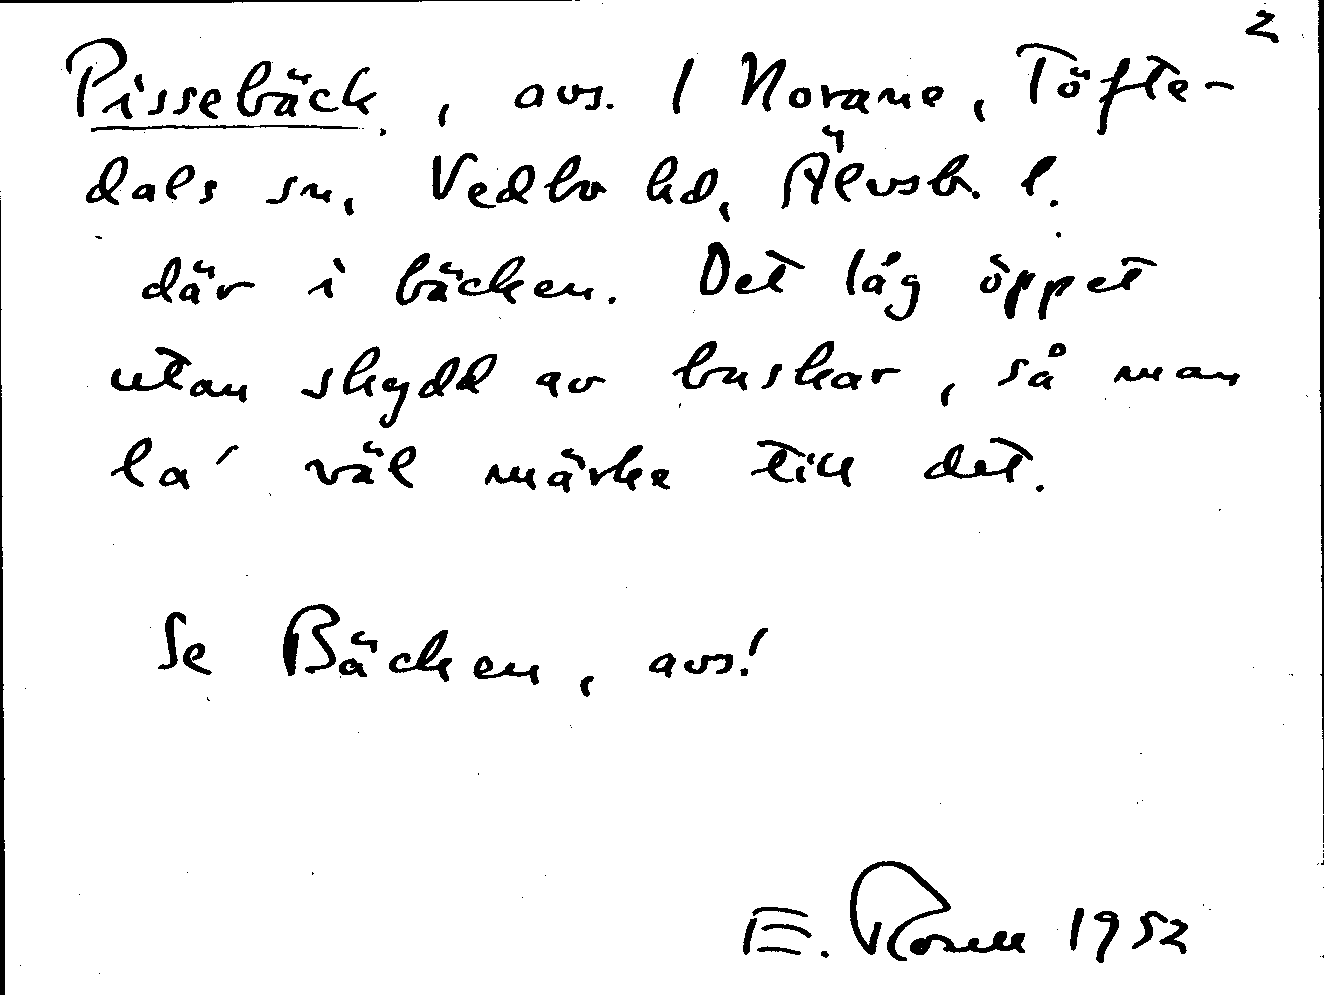 2
Pissebäck, avs. / Norane, Töfte-
dals sn, Vedbo hd, Älvsb. l.
där i bäcken. Det låg öppet
utan skydd av buskar, så man
la' väl märke till det.
Se Bäcken, avs!
E. Rosell 1952